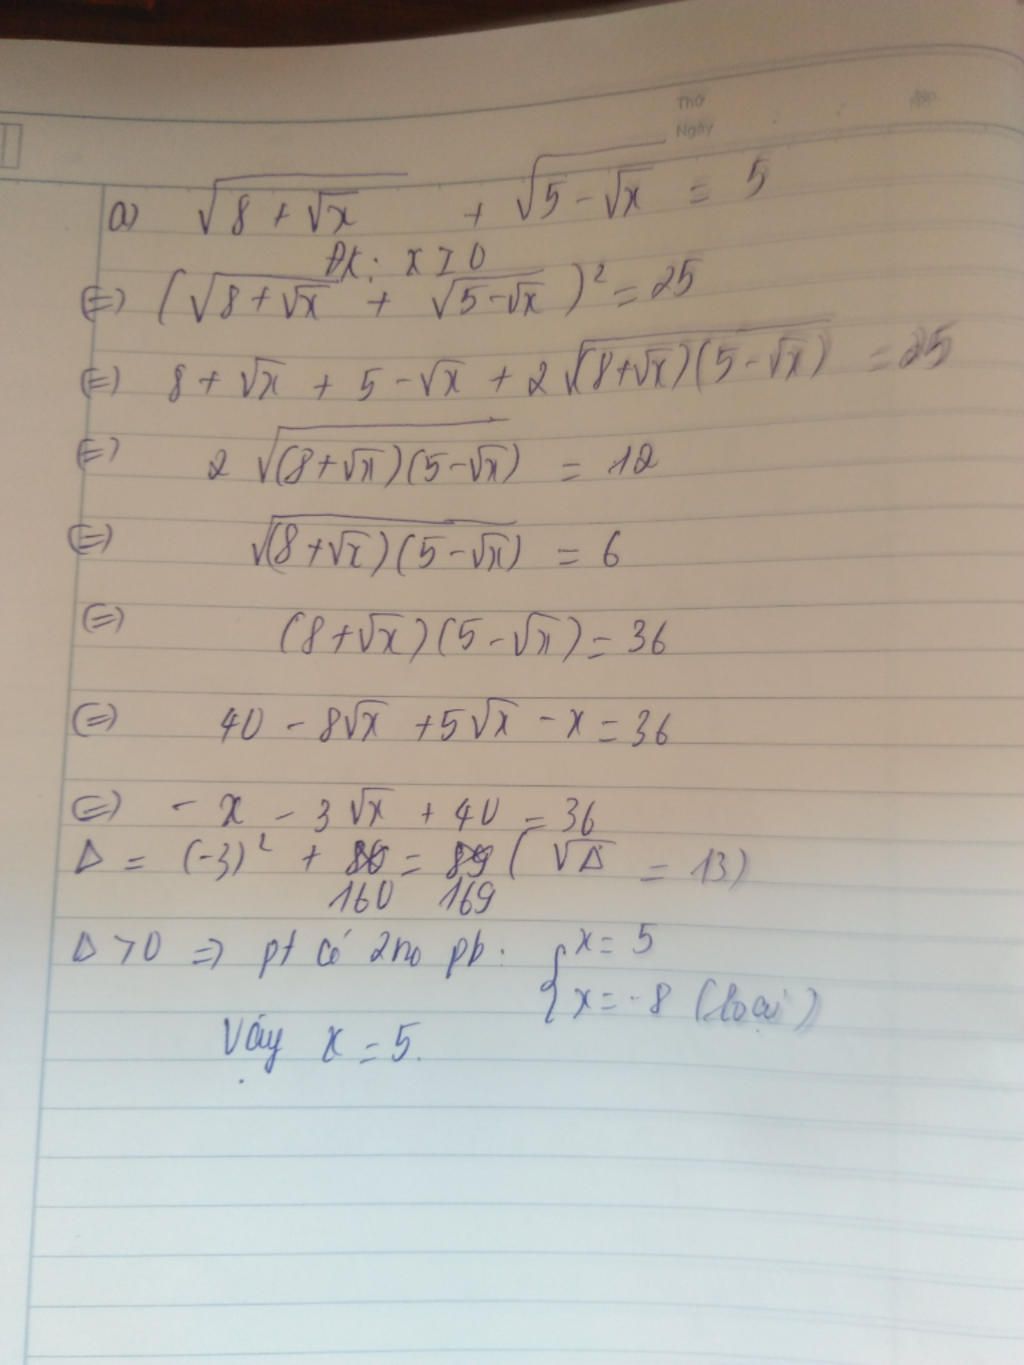 Thứ
Ngày
a) √(8 + √x) + √(5 - √x) = 5
ĐK: x ≥ 0
(=) (√(8 + √x) + √(5 - √x))² = 25
(=) 8 + √x + 5 - √x + 2√((8+√x)(5-√x)) = 25
(=) 2√((8+√x)(5-√x)) = 12
(=) √((8+√x)(5-√x)) = 6
(=) (8+√x)(5-√x) = 36
(=) 40 - 8√x + 5√x - x = 36
(=) - x - 3√x + 40 = 36
Δ = (-3)² + 80 = 89 (√Δ = 13)
160 169
Δ > 0 => pt có 2 no pb: { x = 5
x = -8 (loại)
Vậy x = 5.